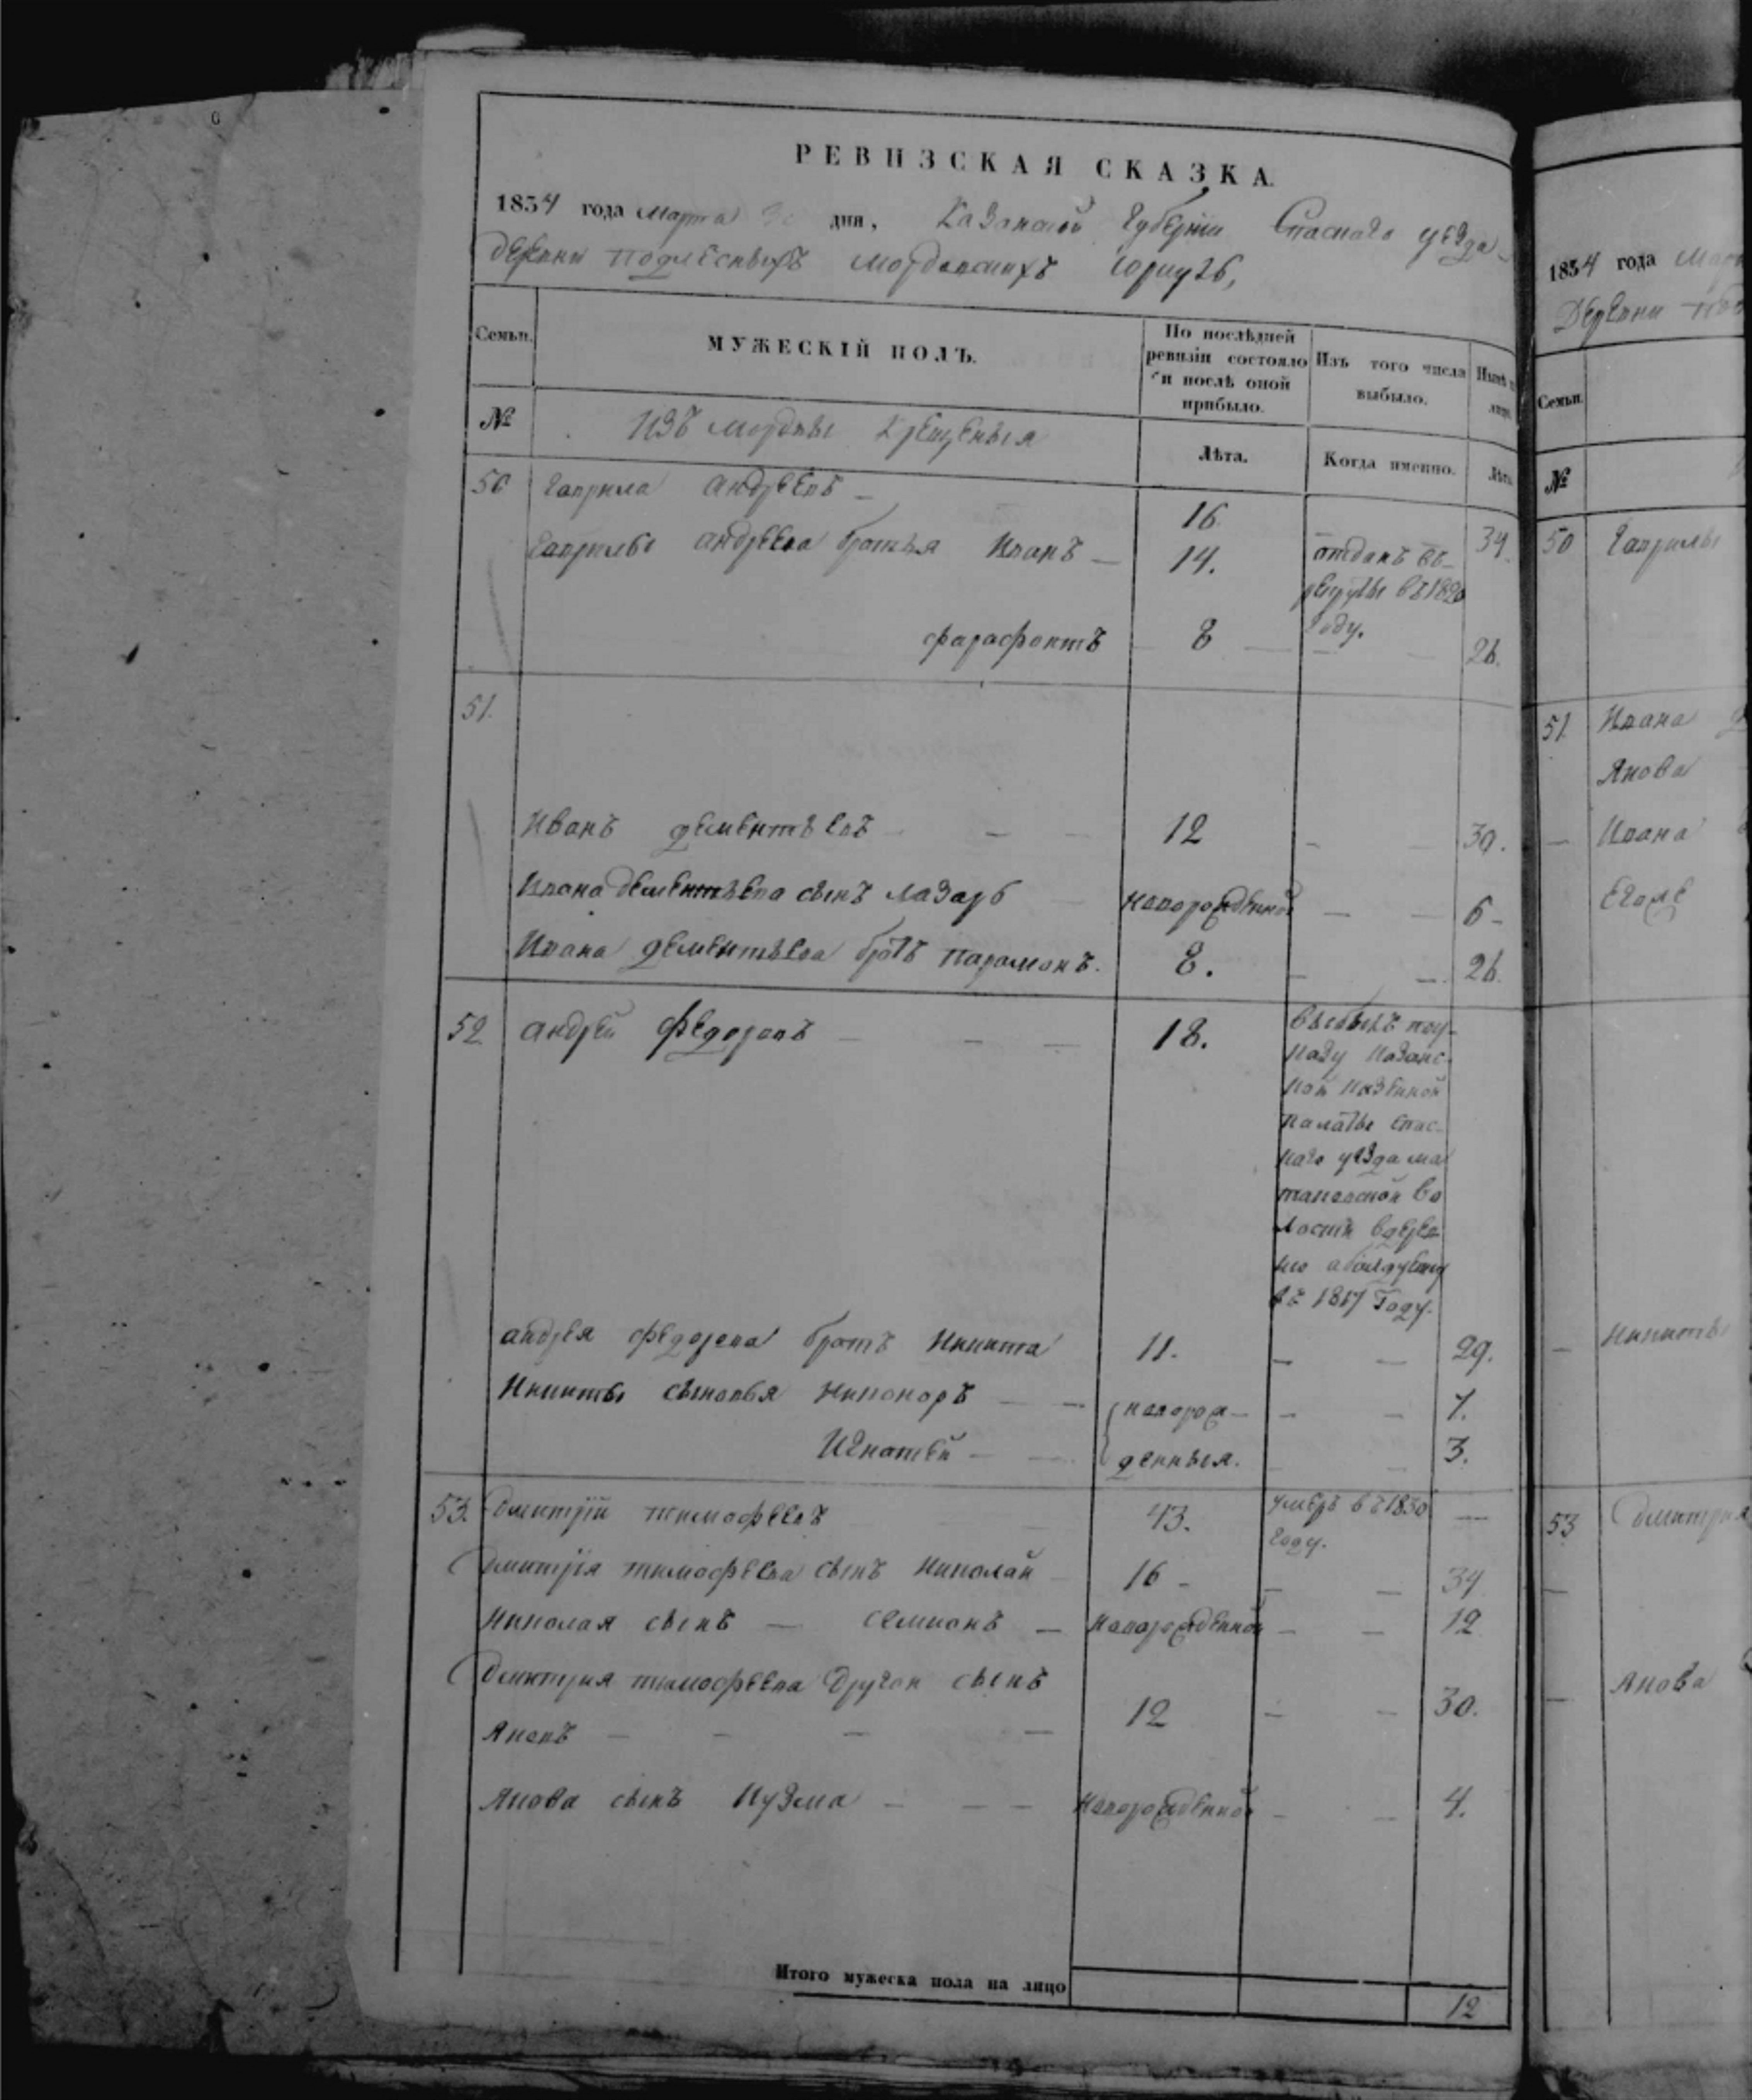 РЕВИЗСКАЯ СКАЗКА.
1834 года марта 30 дня, Казанской Губернiи Спаскаго уѣзда
деревни подлѣсныхъ мордовскихъ юркулъ,
Семьи.
МУЖЕСКIЙ ПОЛЪ.
По послѣдней ревизiи состояло и послѣ оной прибыло.
Изъ того числа выбыло.
Нынѣ
лицо
№
Изъ мордвы крещеныя
Лѣта.
Когда именно.
Лѣта
50 Гаврила андрѣевъ — 16. 34
Гаврилы андрѣева братья Иванъ — 14. отданъ въ
рекруты въ 1820
году.
фарафонтъ 8 — — 26.
51.
Иванъ дементьевъ — — — 12 — — 30.
Ивана дементьева сынъ лазарь новорожденной — — 6 —
Ивана дементьева братъ парамонъ. 8. — — 26.
52 андрей федоровъ — — — 18. выбылъ поу-
казу казанс-
кой казенной
палаты спас-
каго уѣзда ма
таковской во
лости вдерев-
ню
въ 1817 году.
андрея федорова братъ Никита 11. — — 29.
Никиты сыновья Никоноръ — — новорож- — — 7.
Игнатей — — денныя. 3.
53. Дмитрiй тимофѣевъ 43. умеръ въ 1830 —
году.
Дмитрiя тимофѣева сынъ Николай 16 — — — 34
Николая сынъ — семионъ — новорожденной — — 12
Дмитрия тимофѣева другой сынъ
Яковъ — — — — 12 — — 30.
Якова сынъ Кузма — — — новорожденной — — 4.
Итого мужеска пола на лицо
12
1834 года
Деревни
Семьи.
№
50 Гаврилы
51. Ивана
Якова
— Ивана
— Никиты
53 Дмитрия
—
— Якова